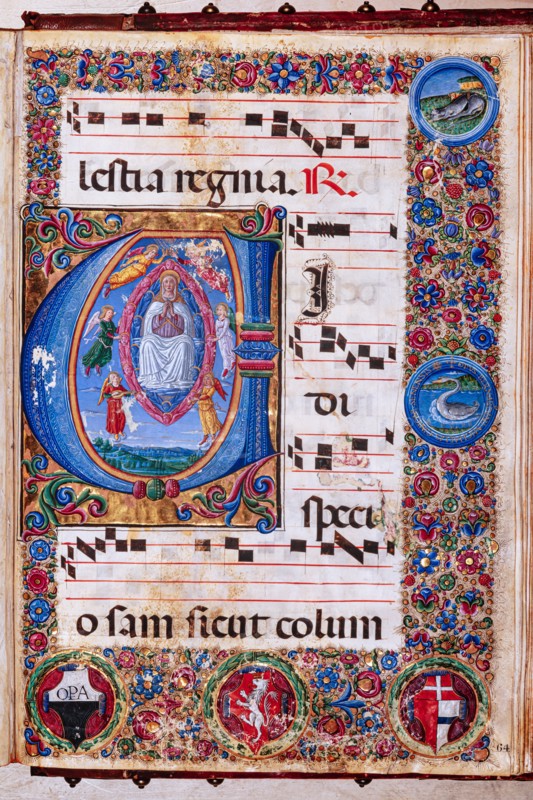 lestia regina. R.
V I
di
speci
o sam sicut colum
OPA
64